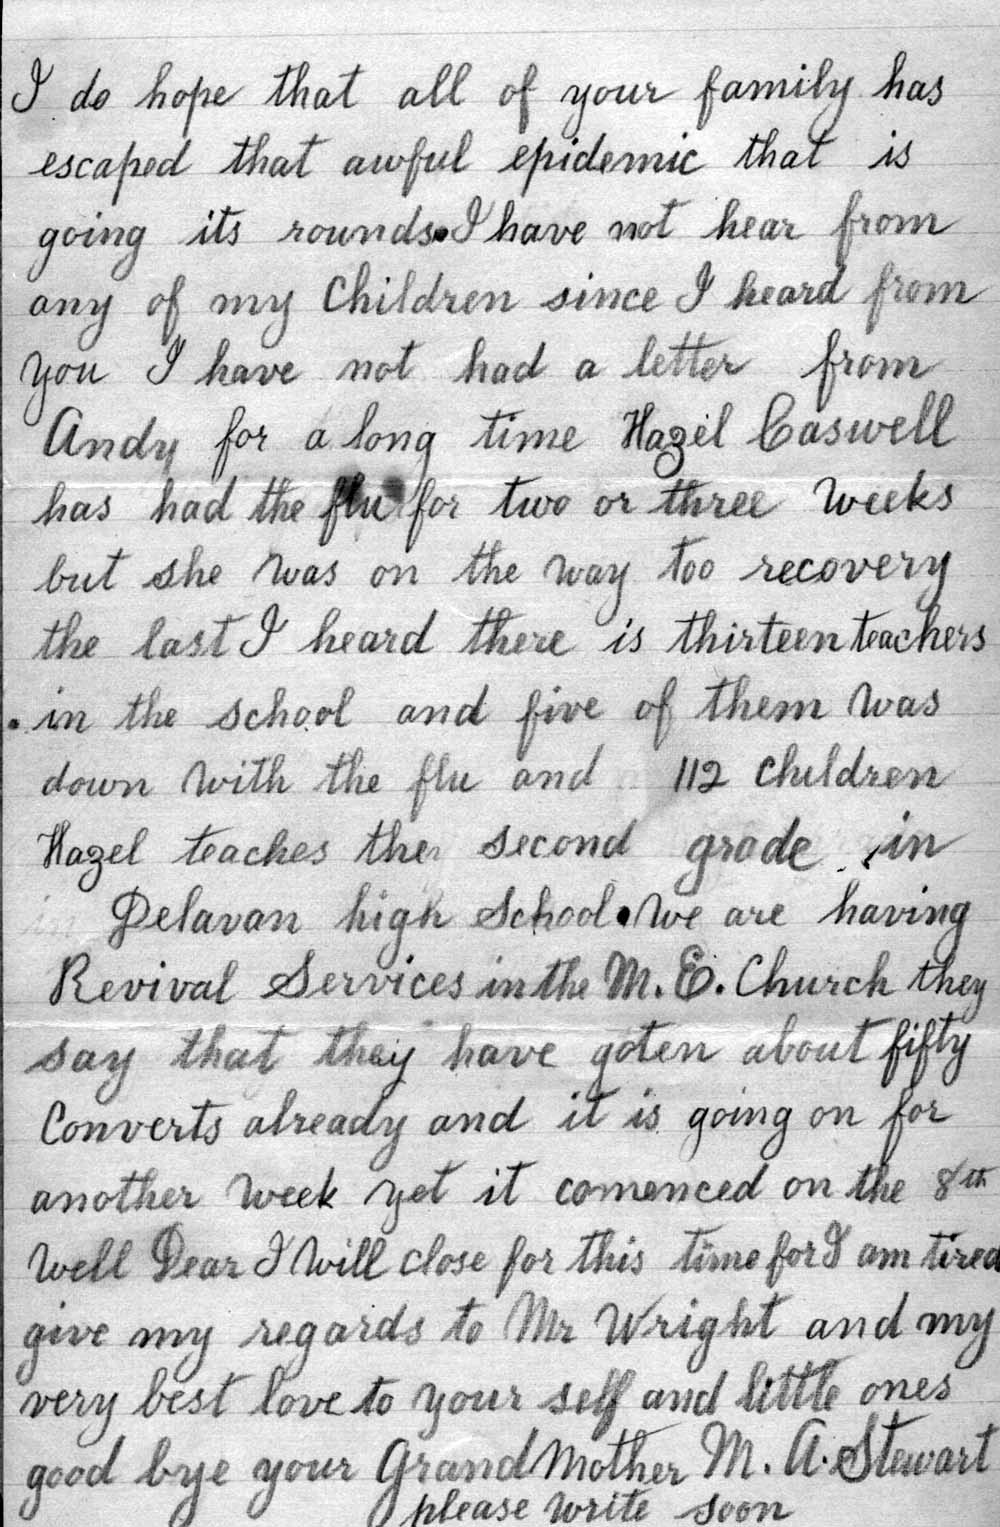 I do hope that all of your family has
escaped that awful epidemic that is
going its rounds. I have not hear from
any of my Children since I heard from
you I have not had a letter from
Andy for a long time Hazel Caswell
has had the flu for two or three weeks
but she was on the way too recovery
the last I heard there is thirteen teachers
in the school and five of them was
down with the flu and 112 children
Hazel teaches the second grade in
in Delavan high School. We are having
Revival Services in the M. E. Church they
say that they have goten about fifty
Converts already and it is going on for
another week yet it comenced on the 8th
well Dear I will close for this time for I am tired
give my regards to Mr Wright and my
very best love to your self and little ones
good bye your Grand Mother M. A. Stewart
please write soon